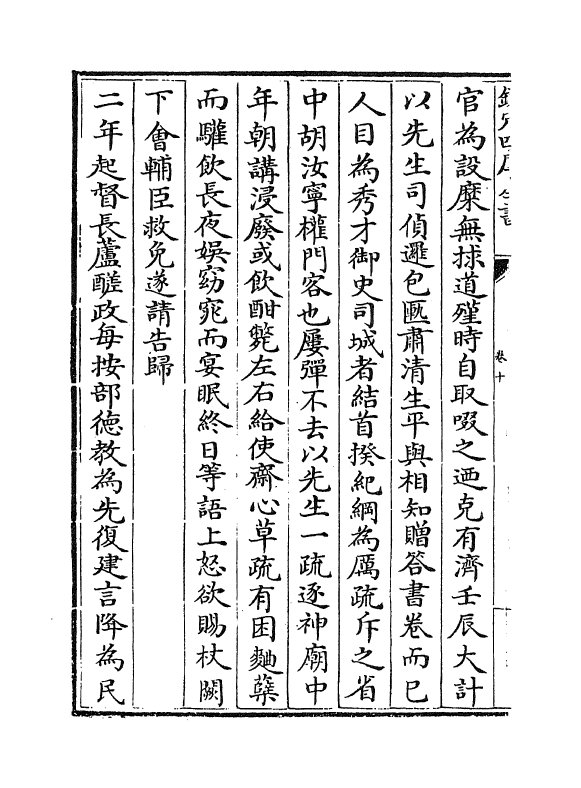 欽定四庫全書
卷十
官為設糜無捄道殣時自取啜之迺克有濟壬辰大計
以先生司偵邏包匭肅清生平與相知贈答書卷而已
人目為秀才御史司城者結首揆紀綱為厲疏斥之省
中胡汝寧權門客也屢彈不去以先生一疏逐神廟中
年朝講浸廢或飲酣斃左右給使齋心草疏有困麯蘖
而驩飲長夜娛窈窕而宴眠終日等語上怒欲賜杖闕
下會輔臣救免遂請告歸
二年起督長蘆鹺政每按部德教為先復建言降為民